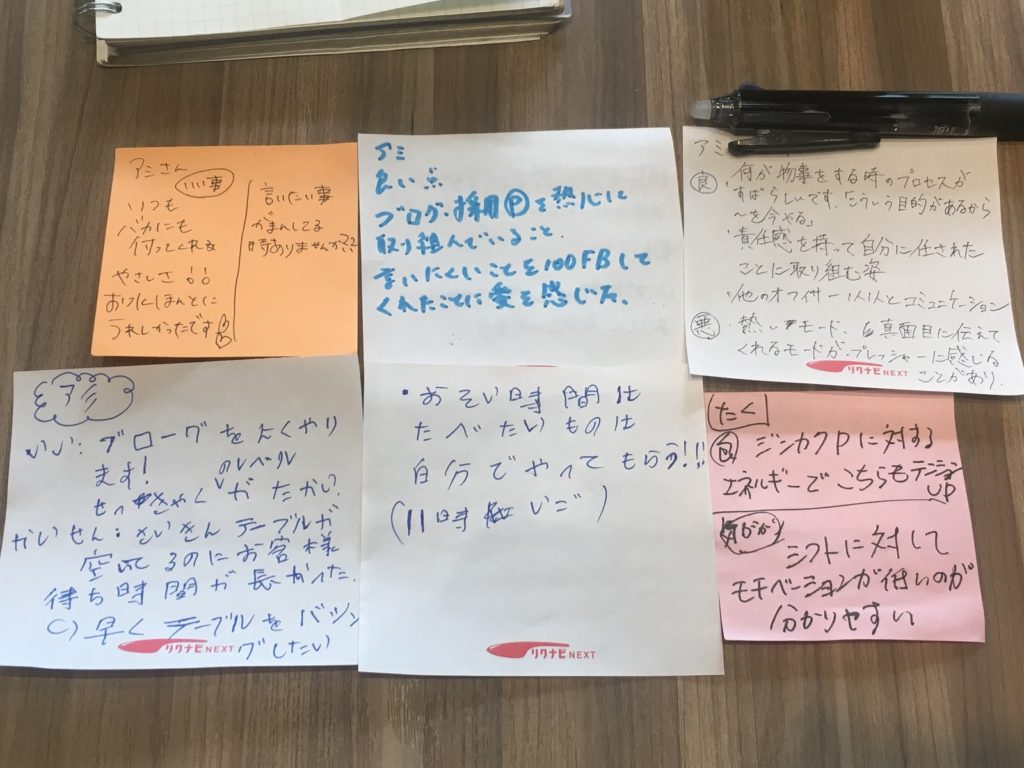 アミさん
いい事
いつも
バカにも
付ってくれる
やさしさ
おkにほんとに
うれしかったです
言いたい事
がまんしてる
時ありませんか??
アミ
良い点
ブログ・採用Ⓟを熱心に
取り組んでいること.
言いにくいことを100FBして
くれたことに愛を感じる.
アミ
良
・何か物事をする時のプロセスが
すばらしいです.「こういう目的があるから
〜を今やる」
・責任感を持って自分に任された
ことに取り組む姿
・他のオフィサー1人1人とコミュニケーション
悪
・熱いモード、真面目に伝えて
くれるモードがプレッシャーに感じる
ことがあり.
リクナビNEXT
アミ
いい:ブローグをよくやり
ます!
せっきゃくのレベルがたかい.
かいせん:さいきんテーブルが
空いてるのにお客様
待ち時間が長かった.
早くテーブルをバッシン
グしたい
リクナビNEXT
・おそい時間は
たべたいものは
自分でやってもらう!!
(11時いご)
リクナビNEXT
たく
ジンカクPに対する
エネルギーでこちらもテンション
UP
シフトに対して
モチベーションが低いのが
分かりやすい